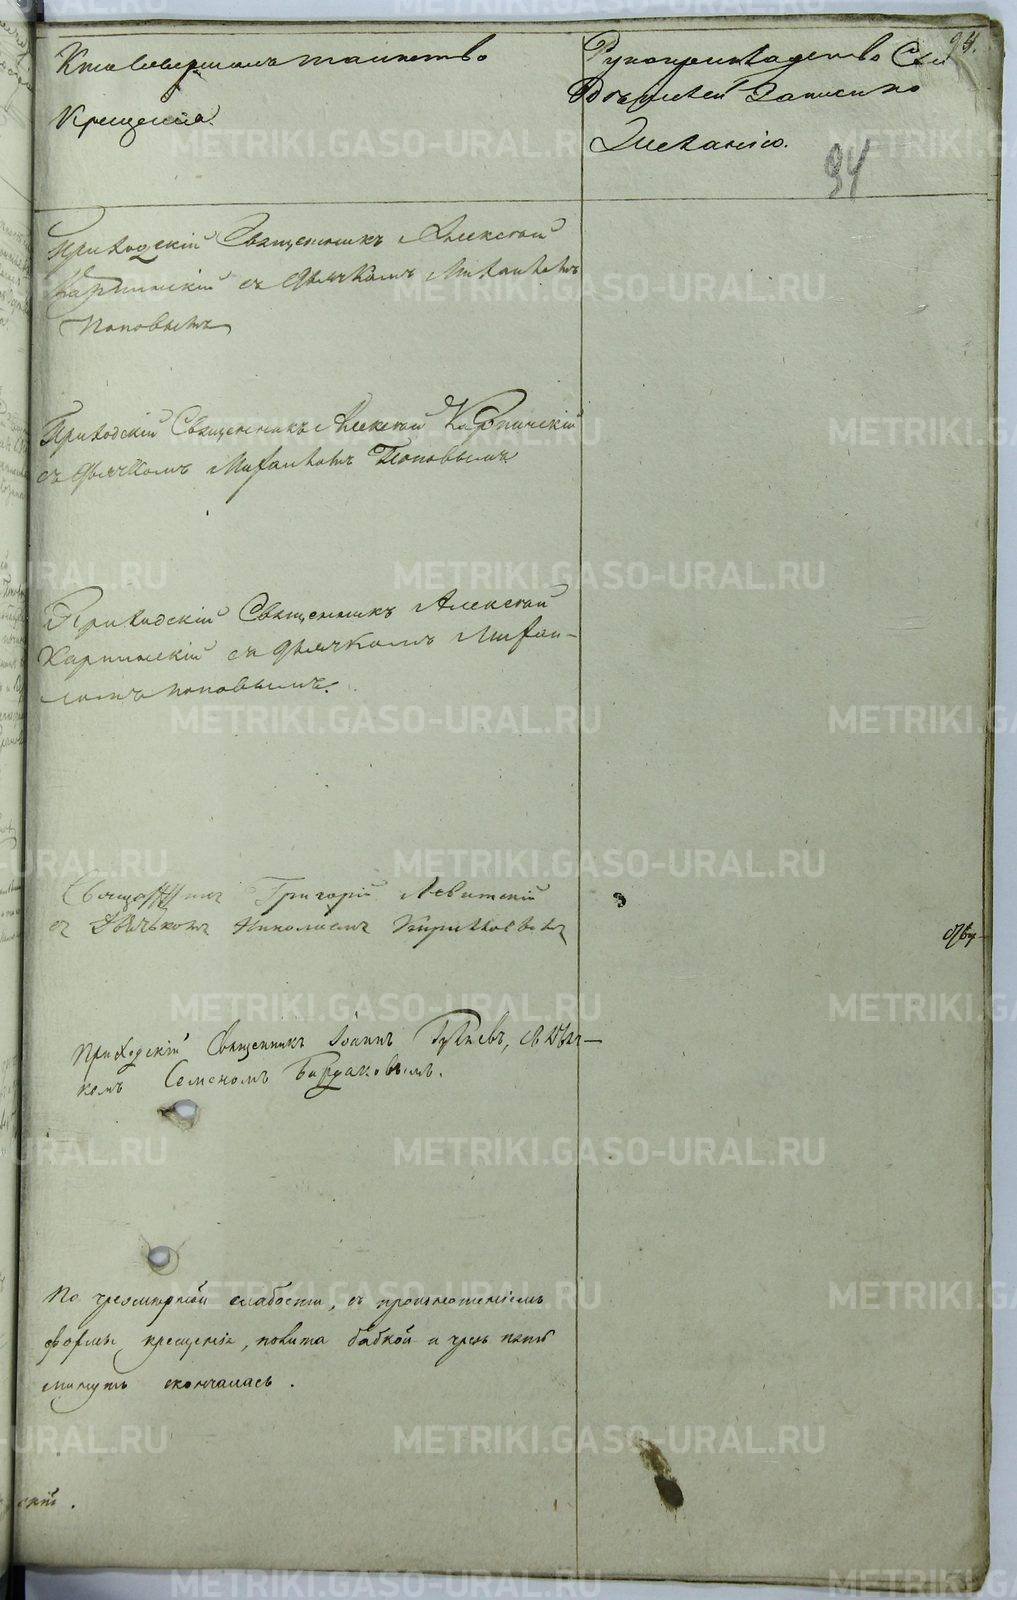 Кто совершалъ таинство
Крещенія.
Рукоприкладство Сви
дѣтелей Записи по
Желанію.
94.
94
Приходскій Священникъ Алексѣй
Карпинскій съ дьячкомъ Михаиломъ
Поповымъ
Приходскій Священникъ Алексѣй Карпинскій
съ дьячкомъ Михаиломъ Поповымъ
Приходскій Священникъ Алексѣй
Карпинскій съ дьячкомъ Михаи-
ломъ Поповымъ.
Священникъ Григорій Левитскій
съ Дьячкомъ Николаемъ
Приходскій Священникъ Іоаннъ съ Дьяч-
комъ Семеномъ Бирюковымъ.
По чрезмѣрной слабости, съ произнесеніемъ
формы крещенія, повита бабкой и чрезъ пять
минутъ скончалась.
METRIKI.GASO-URAL.RU